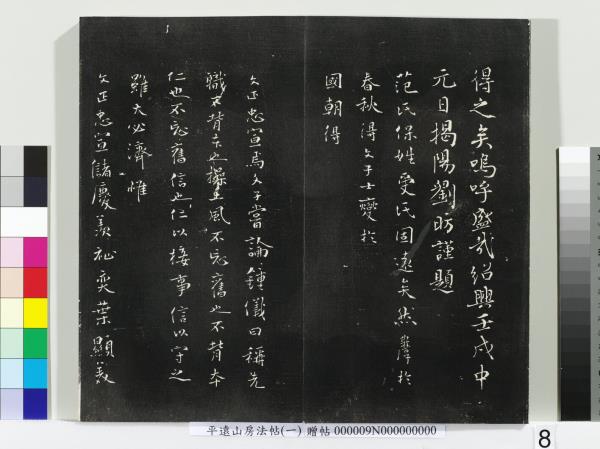 得之矣嗚呼盛哉紹興壬戌中
元日揭陽劉昉謹題
范氏保姓受氏固遠矣然肇於
春秋得文子士燮於
國朝得
文正忠宣焉文子嘗論鍾儀曰稱先
職不背本也操土風不忘舊也不背本
仁也不忘舊信也仁以接事信以守之
雖大必濟惟
文正忠宣儲慶羨祉奕葉顯美
平遠山房法帖(一) 贈帖 000009N000000000
8